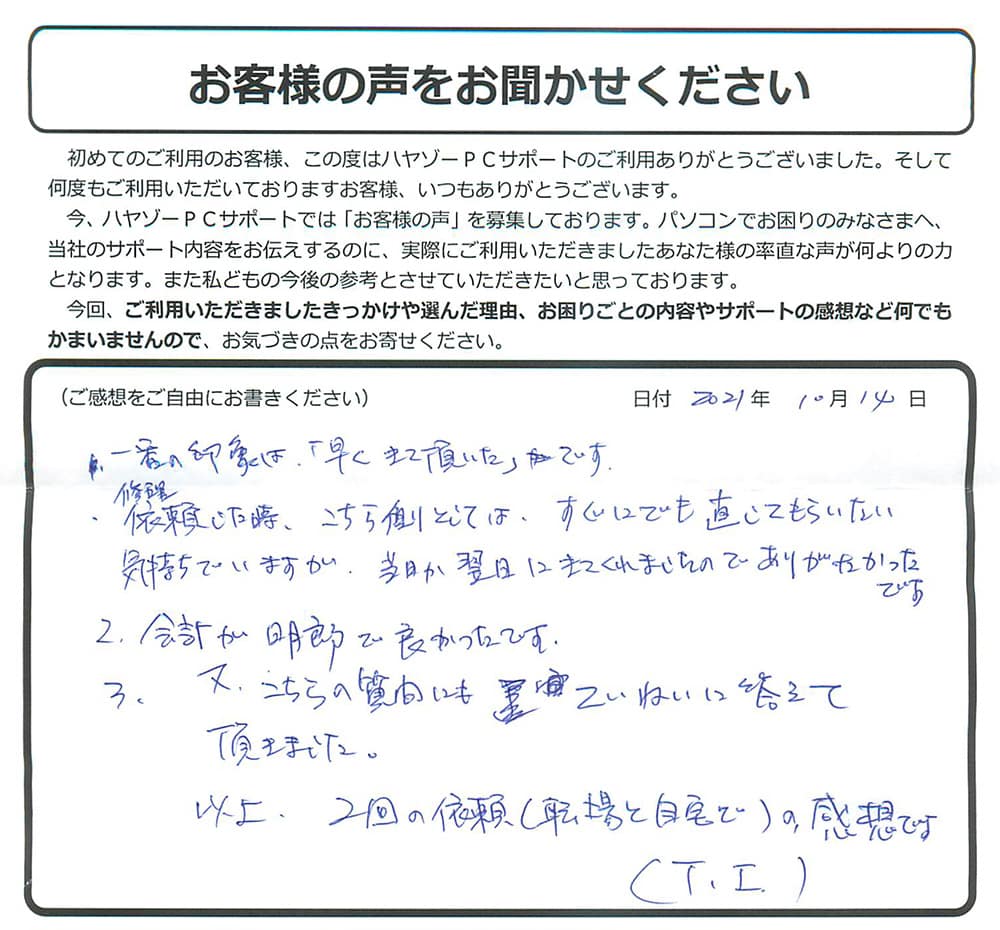 お客様の声をお聞かせください
初めてのご利用のお客様、この度はハヤゾーPCサポートのご利用ありがとうございました。そして
何度もご利用いただいておりますお客様、いつもありがとうございます。
今、ハヤゾーPCサポートでは「お客様の声」を募集しております。パソコンでお困りのみなさまへ、
当社のサポート内容をお伝えするのに、実際にご利用いただきましたあなた様の率直な声が何よりの力
となります。また私どもの今後の参考とさせていただきたいと思っております。
今回、ご利用いただきましたきっかけや選んだ理由、お困りごとの内容やサポートの感想など何でも
かまいませんので、お気づきの点をお寄せください。
(ご感想をご自由にお書きください) 日付 2021年 10月 14日
1. 一番の印象は、「早くきて頂いた」です。
修理
・依頼した時、こちら側としては、すぐにでも直してもらいたい
気持ちでいますが、当日か翌日にきてくれましたのでありがたかった
です
2. 会計が明朗で良かったです。
3. 又、こちらの質問にもていねいに答えて
頂きました。
以上、2回の依頼(職場と自宅で)の感想です
(T.I.)